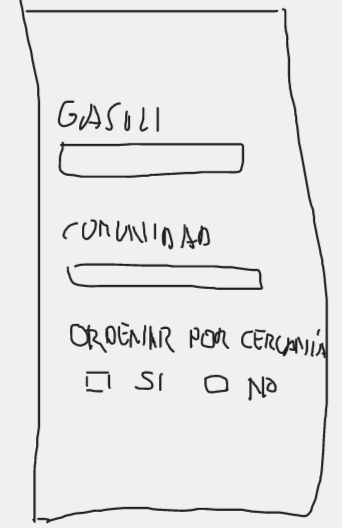 GASOLI
COMUNIDAD
ORDENAR POR CERCANÍA
SI NO